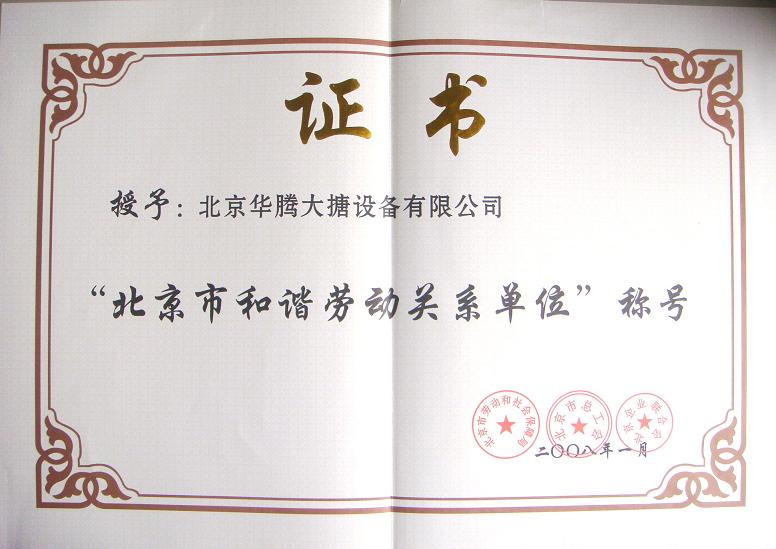 证书
授予：北京华腾大搪设备有限公司
“北京市和谐劳动关系单位”称号
北京市劳动和社会保障局
北京市总工会
北京企业联合会
二〇〇八年一月